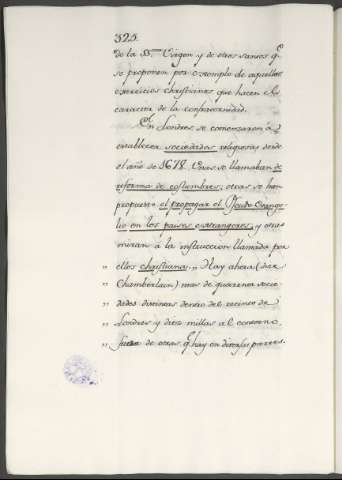 325
de la SS.ma Virgen y de otros santos q.e
se proponen por exemplo de aquellos
exercicios christianos que hacen el
caracter de la confraternidad.
En Londres se comenzaron á
establecer sociedades religiosas desde
el año de 1678. Unas se llamaban de
reforma de costumbres; otras se han
propuesto el propagar el Pseudo Evange
lio en los paises extrangeros; y otras
miran á la instruccion llamada por
„ ellos christiana. „ Hay ahora (dice
„ Chamberlain) mas de quarenta socie
„ dades distintas dentro del recinto de
„ Londres y diez millas al contorno,
„ fuera de otras q.e hay en diversas partes.